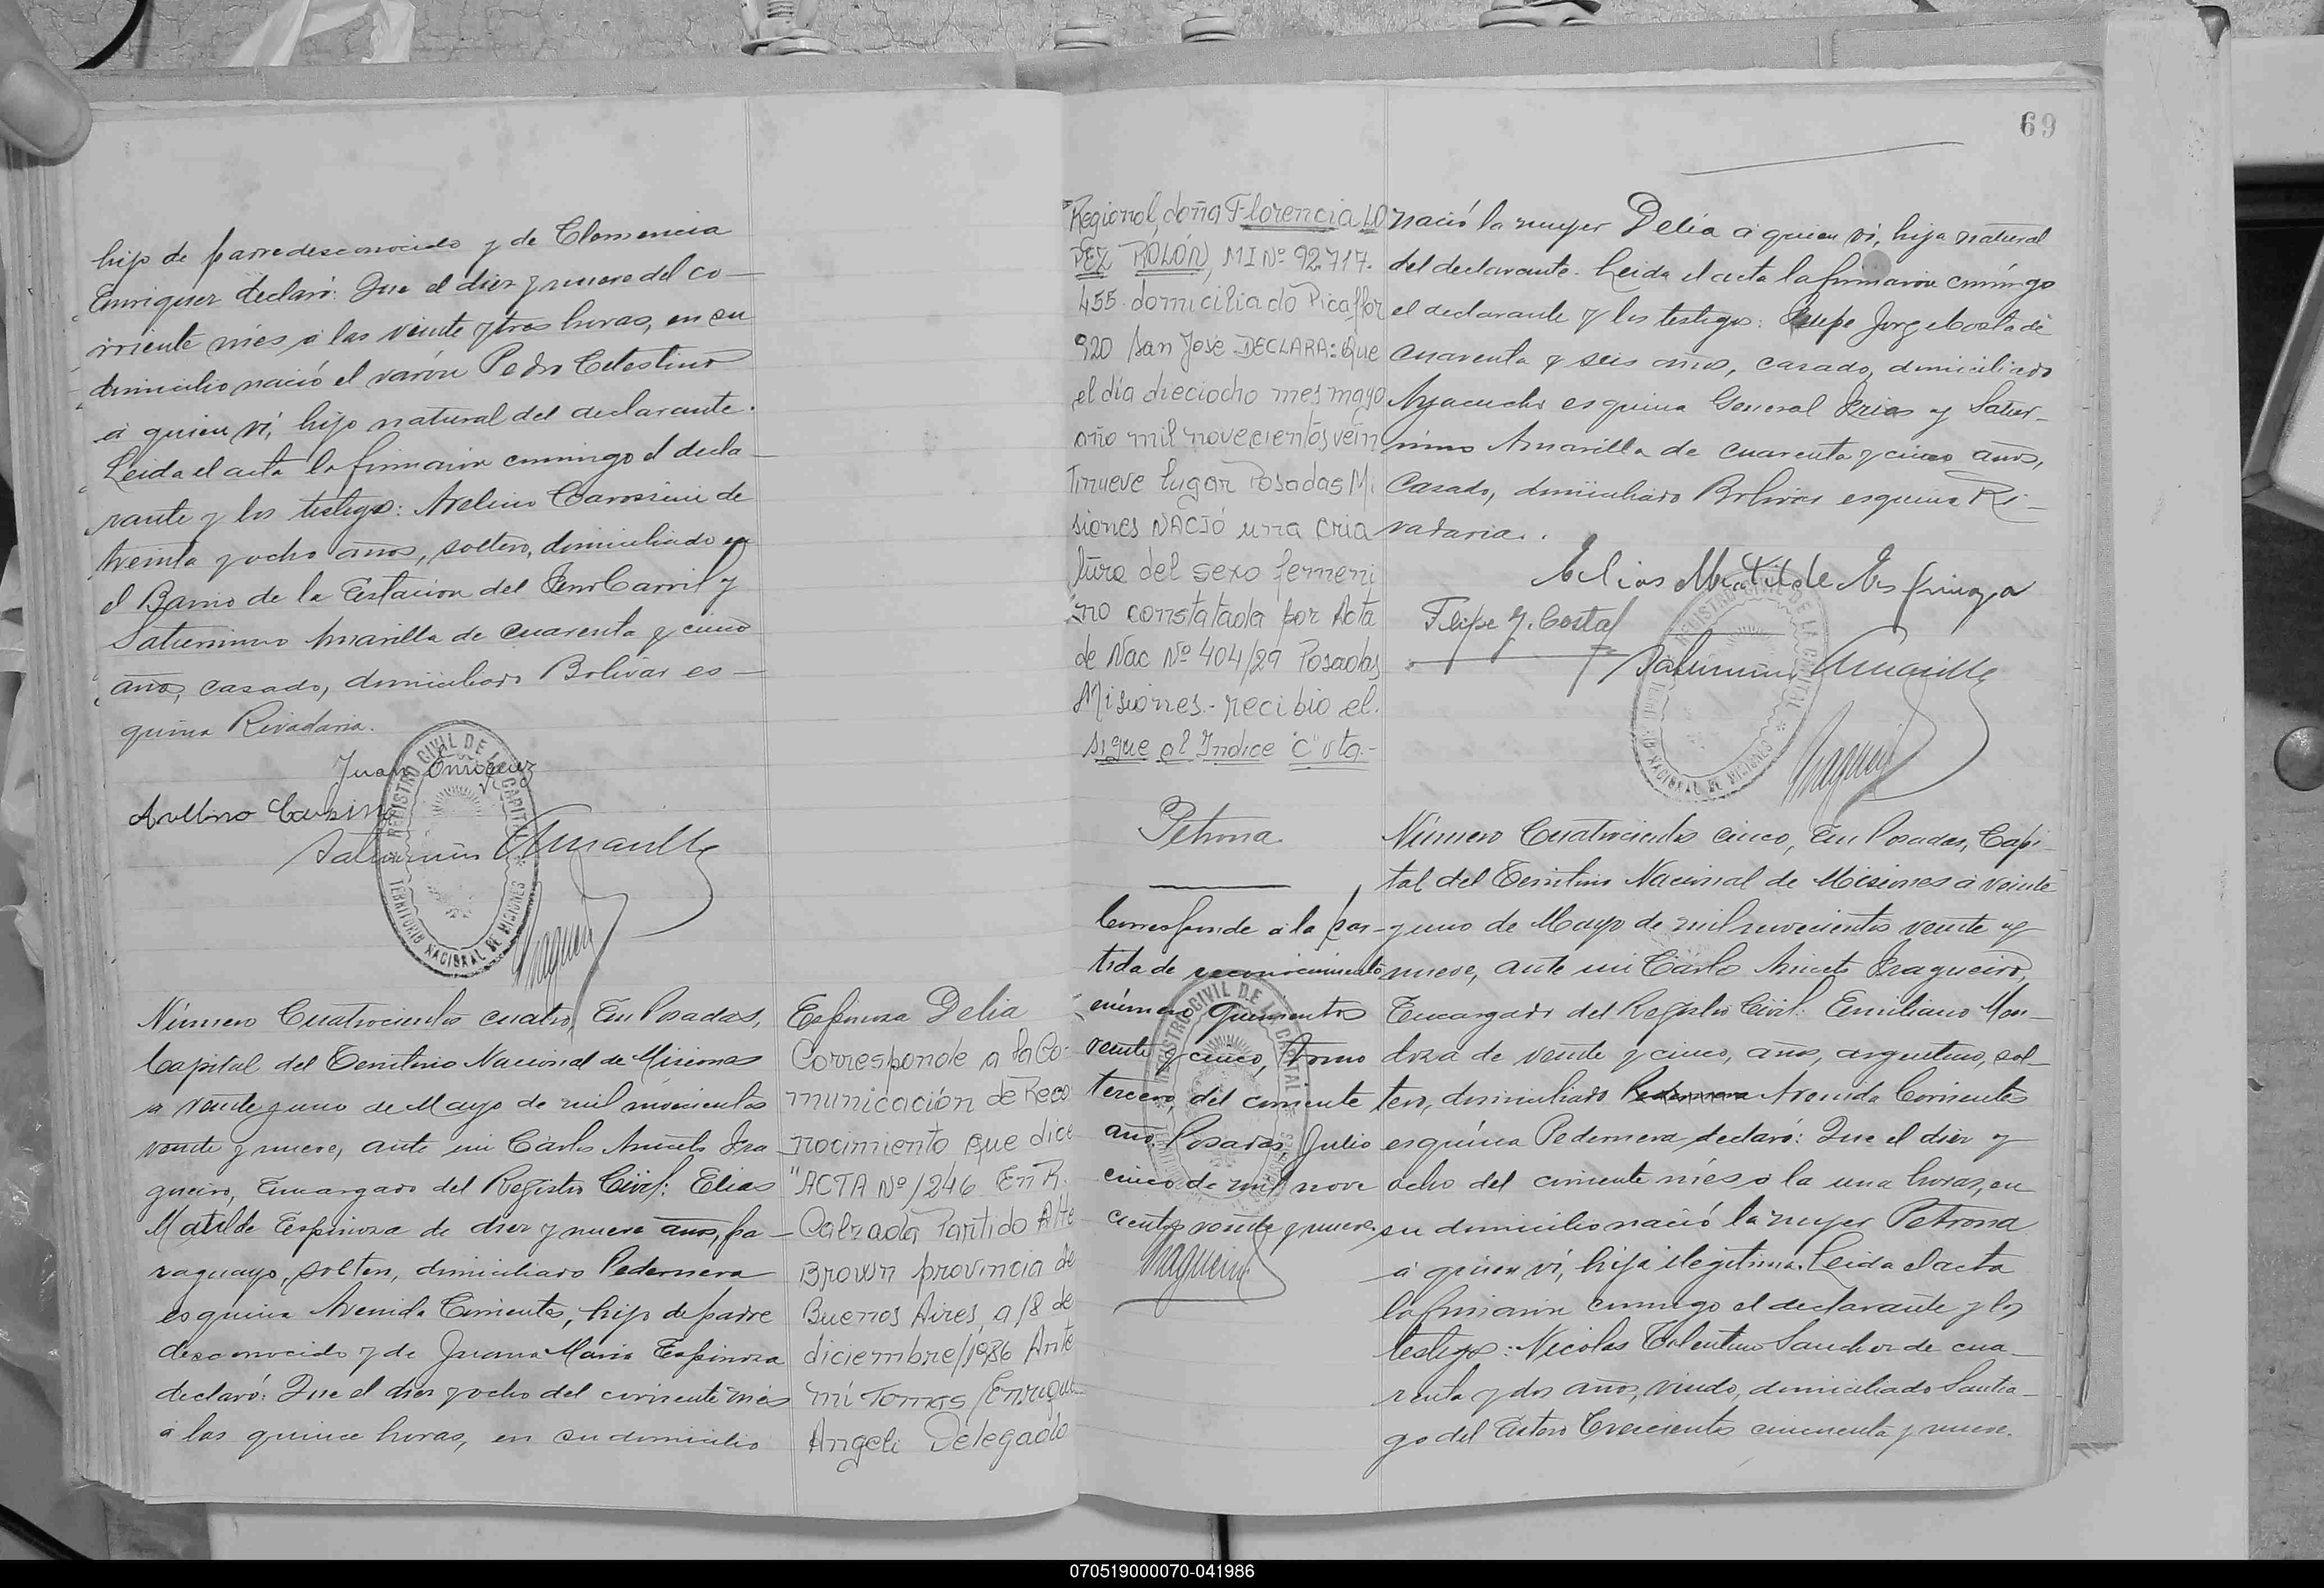 hijo de padre desconocido y de Clemencia
Enriquez declaró: Que el diez y nueve del co-
rriente més a las veinte y tres horas, en su
domicilio nació el varón Pedro Celestino
á quien ví, hijo natural del declarante.
Leida el acta la firmaron conmigo el decla-
rante y los testigos: Avelino Carossini de
treinta y ocho años, soltero, domiciliado en
el Barrio de la Estacion del Ferro Carril y
Saturnino Amarilla de cuarenta y cinco
años, casado, domiciliado Bolivar es-
quina Rivadavia.
Juan Enriquez
Avelino
Saturnino Amarilla
REGISTRO CIVIL DE LA CAPITAL
TERRITORIO NACIONAL DE MISIONES
Número Cuatrocientos cuatro, En Posadas,
Capital del Territorio Nacional de Misiones
a veinte y uno de Mayo de mil novecientos
veinte y nueve, ante mi Carlos Aniceto Fra
gueiro, Encargado del Registro Civil: Elias
Matilde Espinoza de diez y nueve años, pa-
raguayo, soltero, domiciliado Pedernera
esquina Avenida Corrientes, hijo de padre
desconocido y de Juana Maria Espinoza
declaró: Que el diez y ocho del corriente més
á las quince horas, en su domicilio
Espinoza Delia
Corresponde a la Co-
municación de Reco
nocimiento que dice
"ACTA Nº 1246 En R.
Calzada Partido Alte
Brown provincia de
Buenos Aires, a 18 de
diciembre/1986 Ante
mí Tomas Enrique
Angeli Delegado
Regional, doña Florencia LO
PEZ ROLÓN, MI Nº 92.717.
455 domiciliado Picaflor
920 San José DECLARA: Que
el día dieciocho mes mayo
año mil novecientos vein
tinueve lugar Posadas Mi
siones NACIÓ una cria
tura del sexo femeni
no constatada por Acta
de Nac Nº 404/29 Posadas
Misiones.- recibio el.
sigue al Indice "C" vta.-
69
nació la mujer Delia á quien ví, hija natural
del declarante. Leida el acta la firmaron conmigo
el declarante y los testigos: Felipe Jorge Costa de
cuarenta y seis años, casado, domiciliado
Ayacucho esquina General Frias y Satur-
nino Amarilla de cuarenta y cinco años,
Casado, domiciliado Bolivar esquina Ri-
vadavia.
Elias Matilde Espinoza
Felipe J. Costa
Saturnino Amarilla
REGISTRO CIVIL DE LA CAPITAL
TERRITORIO NACIONAL DE MISIONES
Petrona
Corresponde a la par-
tida de reconocimiento
número Quinientos
veinte y cinco, tomo
tercero, del corriente
año. Posadas, Julio
cinco de mil nove
cientos veinte y nueve.
Fragueiro
REGISTRO CIVIL DE LA CAPITAL
Número Cuatrocientos cinco, En Posadas, Capi-
tal del Territorio Nacional de Misiones á veinte
y uno de Mayo de mil novecientos veinte y
nueve, ante mi Carlos Aniceto Fragueiro,
Encargado del Registro Civil: Emiliano Men-
doza de veinte y cinco, años, argentino, sol-
tero, domiciliado Pedernera Avenida Corrientes
esquina Pedernera declaró: Que el diez y
ocho del corriente més a la una horas, en
su domicilio nació la mujer Petrona
á quien ví, hija ilegitima. Leida el acta
la firmaron conmigo el declarante y los
testigos: Nicolas Tolentino Sanchez de cua-
renta y dos años, viudo, domiciliado Santia-
go del Estero Trescientos cincuenta y nueve.
070519000070-041986